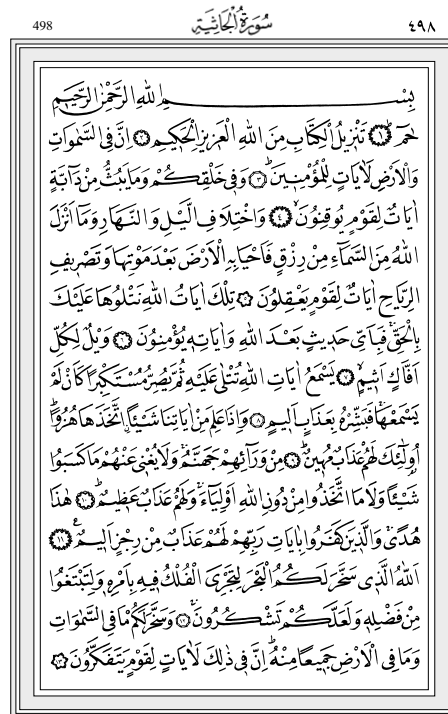 498 سُورَةُ الْجَاثِيَةِ ٤٩٨
بِسْمِ اللهِ الرَّحْمٰنِ الرَّحِيمِ
حٰمٓ ﴿١﴾ تَنْزِيلُ الْكِتَابِ مِنَ اللهِ الْعَزِيزِ الْحَكِيمِ ﴿٢﴾ اِنَّ فِي السَّمٰوَاتِ
وَالْاَرْضِ لَاٰيَاتٍ لِلْمُؤْمِنِينَ ﴿٣﴾ وَفِي خَلْقِكُمْ وَمَا يَبُثُّ مِنْ دَٓابَّةٍ
اٰيَاتٌ لِقَوْمٍ يُوقِنُونَ ﴿٤﴾ وَاخْتِلَافِ الَّيْلِ وَالنَّهَارِ وَمَٓا اَنْزَلَ
اللهُ مِنَ السَّمَٓاءِ مِنْ رِزْقٍ فَاَحْيَا بِهِ الْاَرْضَ بَعْدَ مَوْتِهَا وَتَصْرِيفِ
الرِّيَاحِ اٰيَاتٌ لِقَوْمٍ يَعْقِلُونَ ﴿٥﴾ تِلْكَ اٰيَاتُ اللهِ نَتْلُوهَا عَلَيْكَ
بِالْحَقِّ فَبِاَيِّ حَدِيثٍ بَعْدَ اللهِ وَاٰيَاتِهِ يُؤْمِنُونَ ﴿٦﴾ وَيْلٌ لِكُلِّ
اَفَّاكٍ اَثِيمٍ ﴿٧﴾ يَسْمَعُ اٰيَاتِ اللهِ تُتْلٰى عَلَيْهِ ثُمَّ يُصِرُّ مُسْتَكْبِرًا كَاَنْ لَمْ
يَسْمَعْهَا فَبَشِّرْهُ بِعَذَابٍ اَلِيمٍ ﴿٨﴾ وَاِذَا عَلِمَ مِنْ اٰيَاتِنَا شَيْـًٔا اتَّخَذَهَا هُزُوًا
اُو۬لٰٓئِكَ لَهُمْ عَذَابٌ مُهِينٌ ﴿٩﴾ مِنْ وَرَٓائِهِمْ جَهَنَّمُ وَلَا يُغْنِي عَنْهُمْ مَا كَسَبُوا
شَيْـًٔا وَلَا مَا اتَّخَذُوا مِنْ دُونِ اللهِ اَوْلِيَٓاءَ وَلَهُمْ عَذَابٌ عَظِيمٌ ﴿١٠﴾ هٰذَا
هُدًى وَالَّذِينَ كَفَرُوا بِاٰيَاتِ رَبِّهِمْ لَهُمْ عَذَابٌ مِنْ رِجْزٍ اَلِيمٌ ﴿١١﴾
اَللهُ الَّذِي سَخَّرَ لَكُمُ الْبَحْرَ لِتَجْرِيَ الْفُلْكُ فِيهِ بِاَمْرِهِ وَلِتَبْتَغُوا
مِنْ فَضْلِهِ وَلَعَلَّكُمْ تَشْكُرُونَ ﴿١٢﴾ وَسَخَّرَ لَكُمْ مَا فِي السَّمٰوَاتِ
وَمَا فِي الْاَرْضِ جَمِيعًا مِنْهُ اِنَّ فِي ذٰلِكَ لَاٰيَاتٍ لِقَوْمٍ يَتَفَكَّرُونَ ﴿١٣﴾